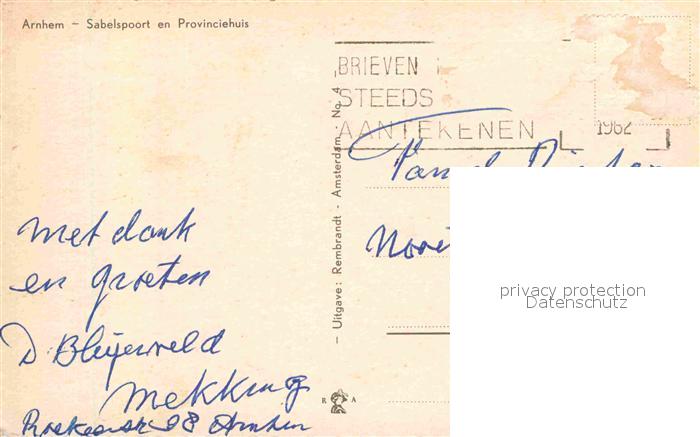 Arnhem - Sabelspoort en Provinciehuis
BRIEVEN
STEEDS
AANTEKENEN
1962
- Uitgave: Rembrandt - Amsterdam No. 4
met dank
en groeten
D. Bleijerveld
Mekking
98 Arnhem
R A
privacy protection
Datenschutz